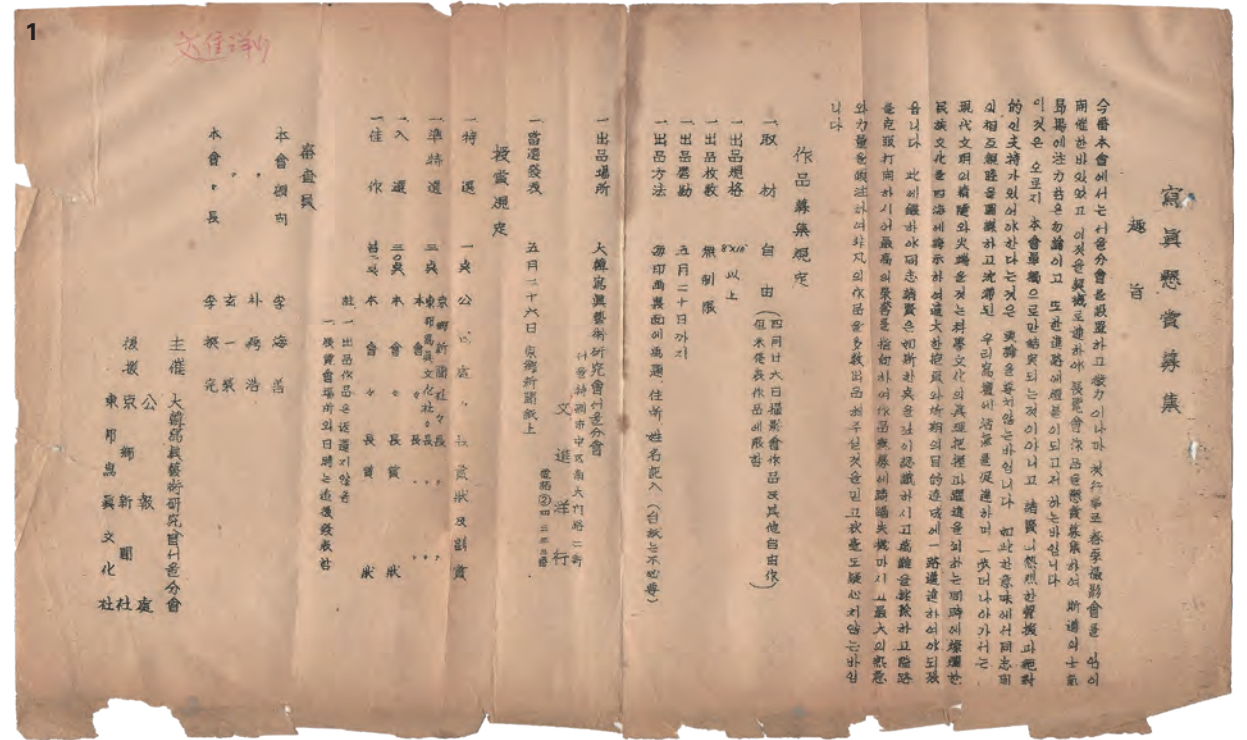 1
文進洋行
寫眞懸賞募集
趣旨
今番本會에서는 서울分會를 設置하고 微力이나마 첫行事로 春季撮影會를 임이
開催한바있었고 이것을 契機로 連하야 展覽會作品을 懸賞募集하여 斯道의 士氣
昂揚에 注力함은 勿論이고 또한 進路에 礎石이되고저 하는바임니다
이것은 오로지 本會單獨으로만 結實되는 것이아니고 諸賢의 絶對
的인 支持가있어야한다는것은 異論을 좋지않는바임니다
의 相互親睦을 圖謀하고 沈滯된 우리寫壇에 活潑을 促進하며 一步더나아가서는
現代文明의 科學文化의 眞理把握과 躍進을 하는同時에 燦爛한
民族文化를 四海에 하여 遠大한 抱負와 所期의 目的達成에 一路邁進하여야되겠
읍니다 此에 鑑하야 同志諸賢은 如斯한 하시고
을 克服打開하시어 最高의 榮譽를 하여 作品 마시고 最大의 熱意
와 力量을 傾注하여 의 作品을 多數出品하여주실것을 믿고 도 疑心치않는바임
니다
作品募集規定
一取材 自由(四月廿六日撮影會作品及其他自由作)
但未發表作品에限함
一出品規格 8×10" 以上
一出品枚數 無制限
一出品 五月二十日까지
一出品方法 每印畵裏面에 畵題、住所、姓名記入(台紙는不必要)
一出品場所 大韓寫眞藝術硏究會서울分會
서울特別市中區南大門路二街
文進洋行
電話②四三
一當選發表 五月二十六日 京鄕新聞紙上
授賞規定
一特選 一点 公報處々長賞狀及副賞
一準特選 三点 京鄕新聞社々長〃〃
東邦寫眞文化社々長〃〃
本會々長〃〃
一入選 三〇点 本會々長賞狀
一佳作 本會々長賞狀
註、一出品作品은返還치않음
一授賞會場所와日時는追後發表함
審査員
本會顧問 李海善
〃 朴弼浩
〃 玄一榮
本會々長 李
主催 大韓寫眞藝術硏究會서울分會
後援 公報處
京鄕新聞社
東邦寫眞文化社